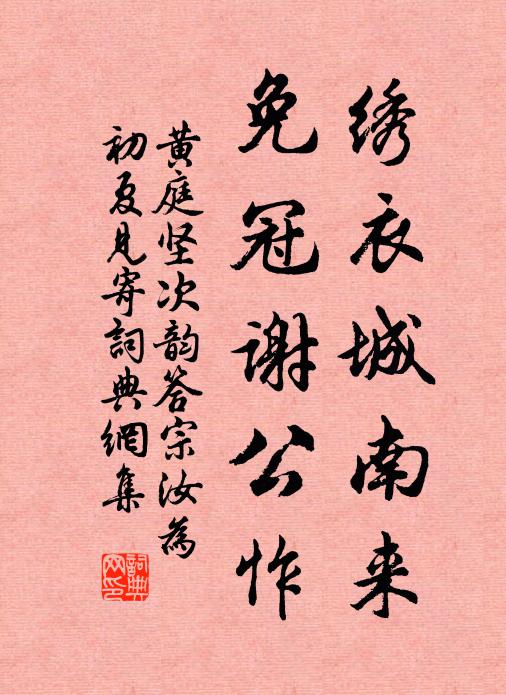 绣衣城南来
免冠谢公怍
黄庭坚次韵答宗汝为
初夏见寄詞典網集
詞典
网印